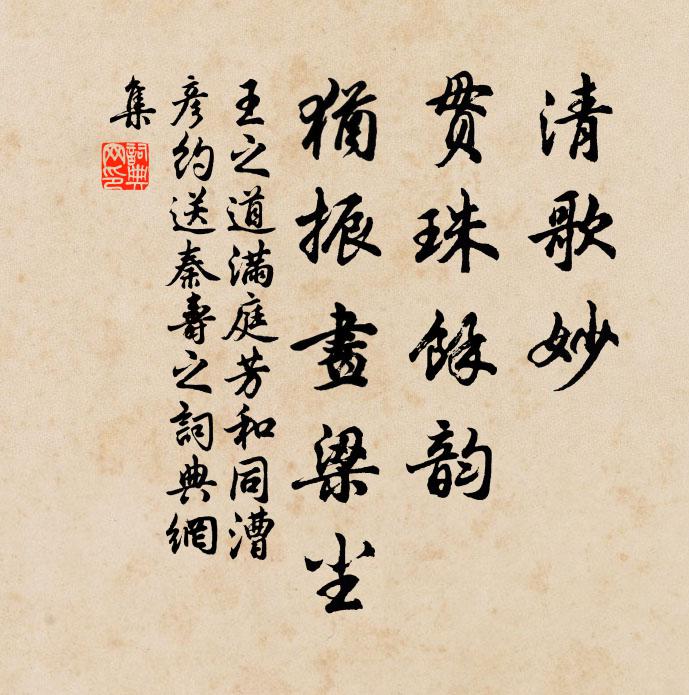 清歌妙
贯珠餘韵
猶振畫梁尘
王之道满庭芳和同漕
彦约送秦壽之詞典網
集
詞典
网印